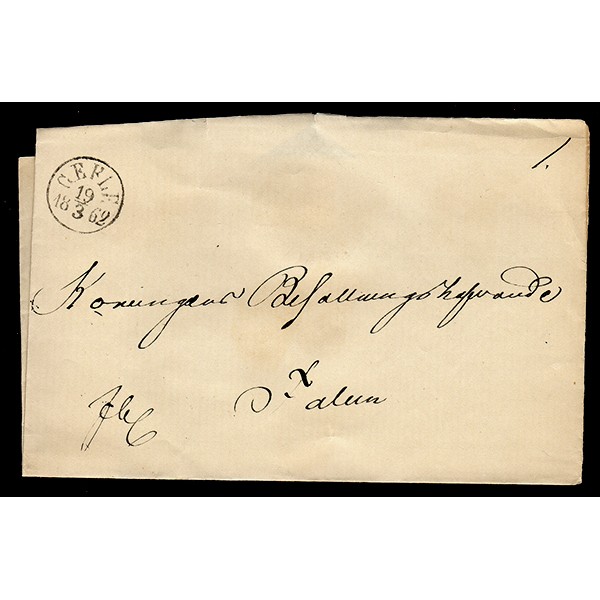 GEFLE
19
3
1862
1.
Konungens Befallningshafvande
Falun